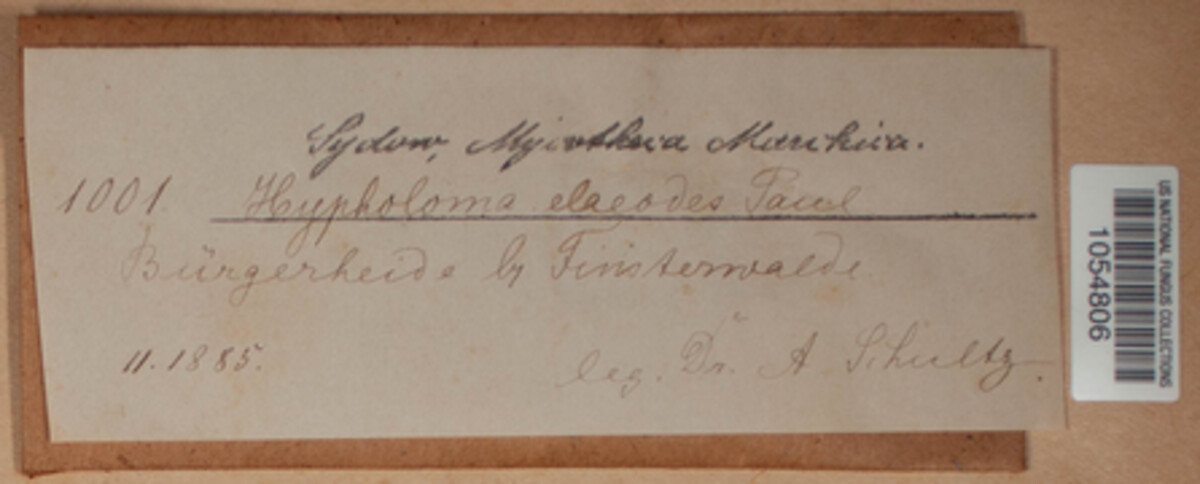 Sydow, Mycotheca Marchica.
1001. Hypholoma elaeodes Paul
Bürgerheide by Finsterwalde
11. 1885.
leg. Dr. A Schultz.
US NATIONAL FUNGUS COLLECTIONS
1054806